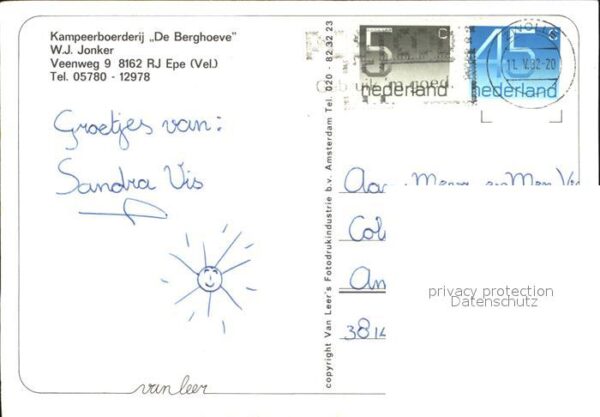 Kampeerboerderij „De Berghoeve"
W.J. Jonker
Veenweg 9 8162 RJ Epe (Vel.)
Tel. 05780 - 12978
Groetjes van:
Sandra Vis
van leer
copyright Van Leer's Fotodrukindustrie b.v. Amsterdam Tel. 020 - 82 32 23
5 c
nederland
45 c
nederland
11.V.82-20
'm goed.
Aan
Col
Am
381
privacy protection
Datenschutz